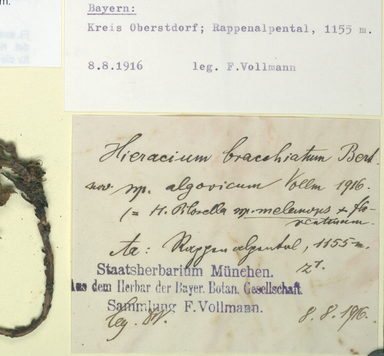 m.
Bayern:
Kreis Oberstdorf; Rappenalpental, 1155 m.
8.8.1916 leg. F.Vollmann
Hieracium brachiatum Bert.
nov sp. algovicum Vollm 1916.
(= H. Pilosella sp. melanops + flo-
rentinum
Aa: Rappenalpental, 1155 m.
Staatsherbarium München.
Aus dem Herbar der Bayer. Botan. Gesellschaft.
Sammlung F.Vollmann.
leg. 8.8.1916.